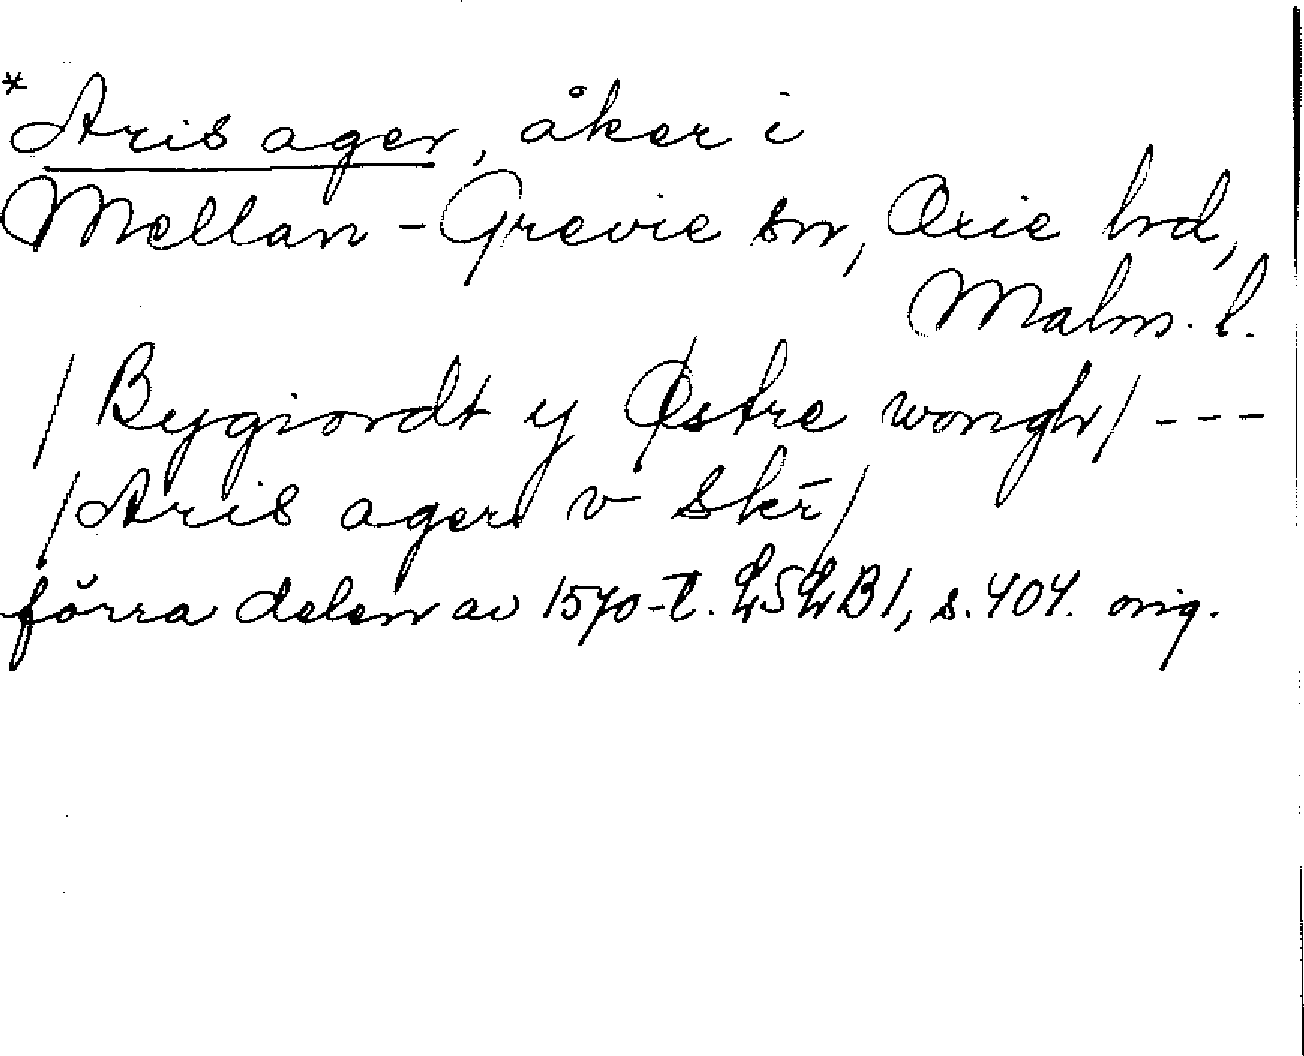 *Aris ager, åker i
Mellan-Grevie sn, Oxie hd,
Malm. l.
/Bygiordt y Østre wongh/ ---
/Aris ager v skr̄/
förra delen av 1570-t. LSLB1, s. 404. orig.